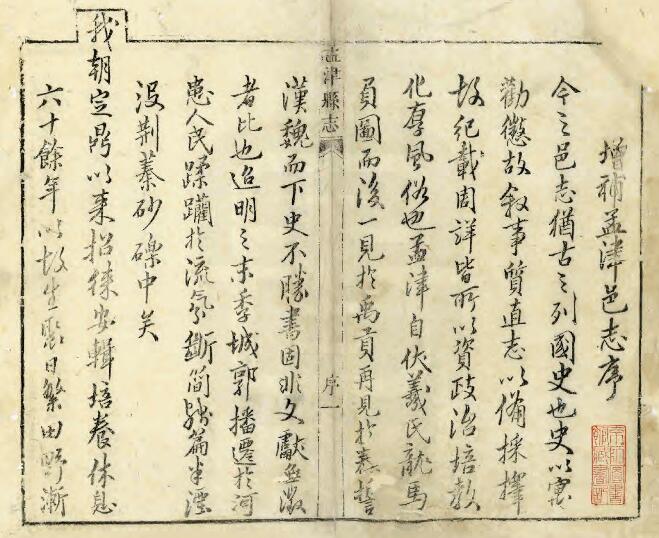 增補孟津邑志序
今之邑志猶古之列國史也史以寓
勸懲故叙事質直志以備採擇
故紀載周詳皆所以資政治培敎
化厚風俗也孟津自伏羲氏龍馬
負圖而後一見於禹貢再見於泰誓
孟津縣志
序一
漢魏而下史不勝書固非文獻無徵
者比也迨明之末季城郭播遷於河
患人民蹂躪於流氛斷簡殘篇半湮
沒荆蓁砂礫中矣
我朝定鼎以來招徠安輯培養休息
六十餘年以故生聚日繁田野漸